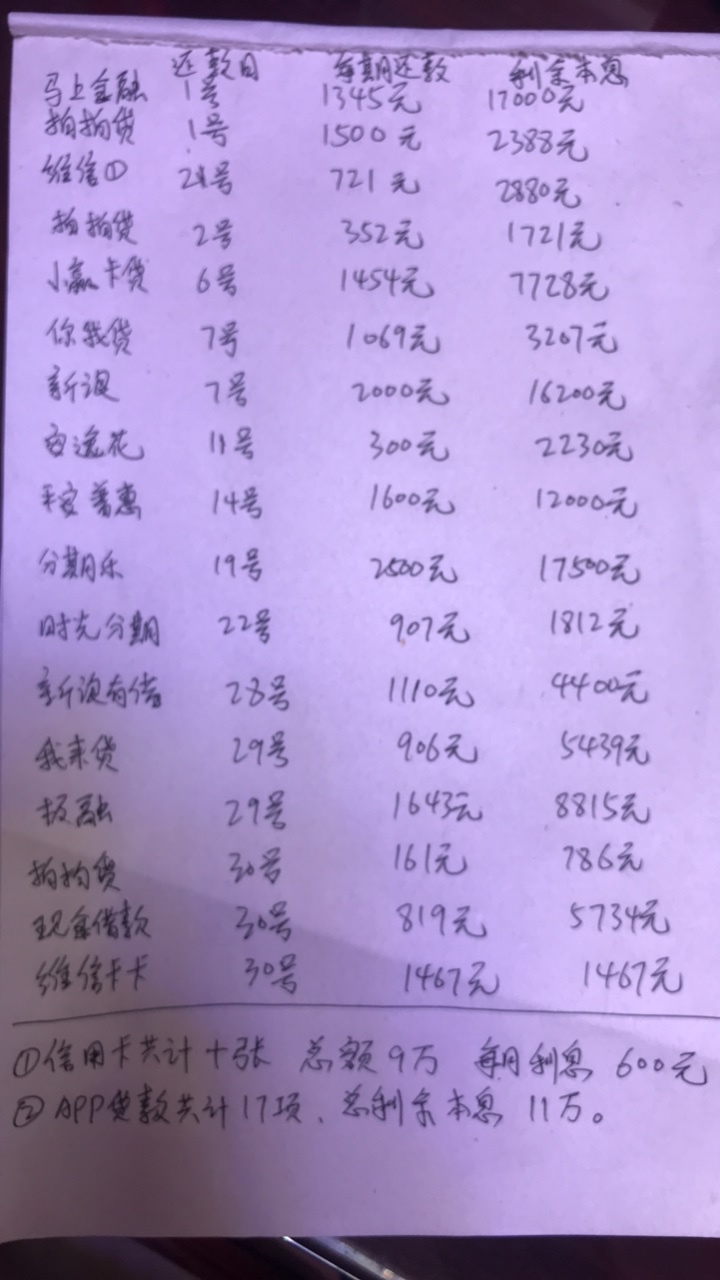 还款日 每期还款 剩余本息
马上金融 1号 1345元 17000元
拍拍贷 1号 1500元 2388元
维信① 21号 721元 2880元
拍拍贷 2号 352元 1721元
小赢卡贷 6号 1454元 7728元
你我贷 7号 1069元 3207元
新浪 7号 2000元 16200元
安逸花 11号 300元 2230元
平安普惠 14号 1600元 12000元
分期乐 19号 2500元 17500元
时光分期 22号 907元 1812元
新浪有借 28号 1110元 4400元
我来贷 29号 906元 5439元
极融 29号 1643元 8815元
拍拍贷 30号 161元 786元
现金借款 30号 819元 5734元
维信卡卡 30号 1467元 1467元
①信用卡共计十张 总额9万 每月利息 600元
②APP贷款共计17项、总剩余本息 11万。